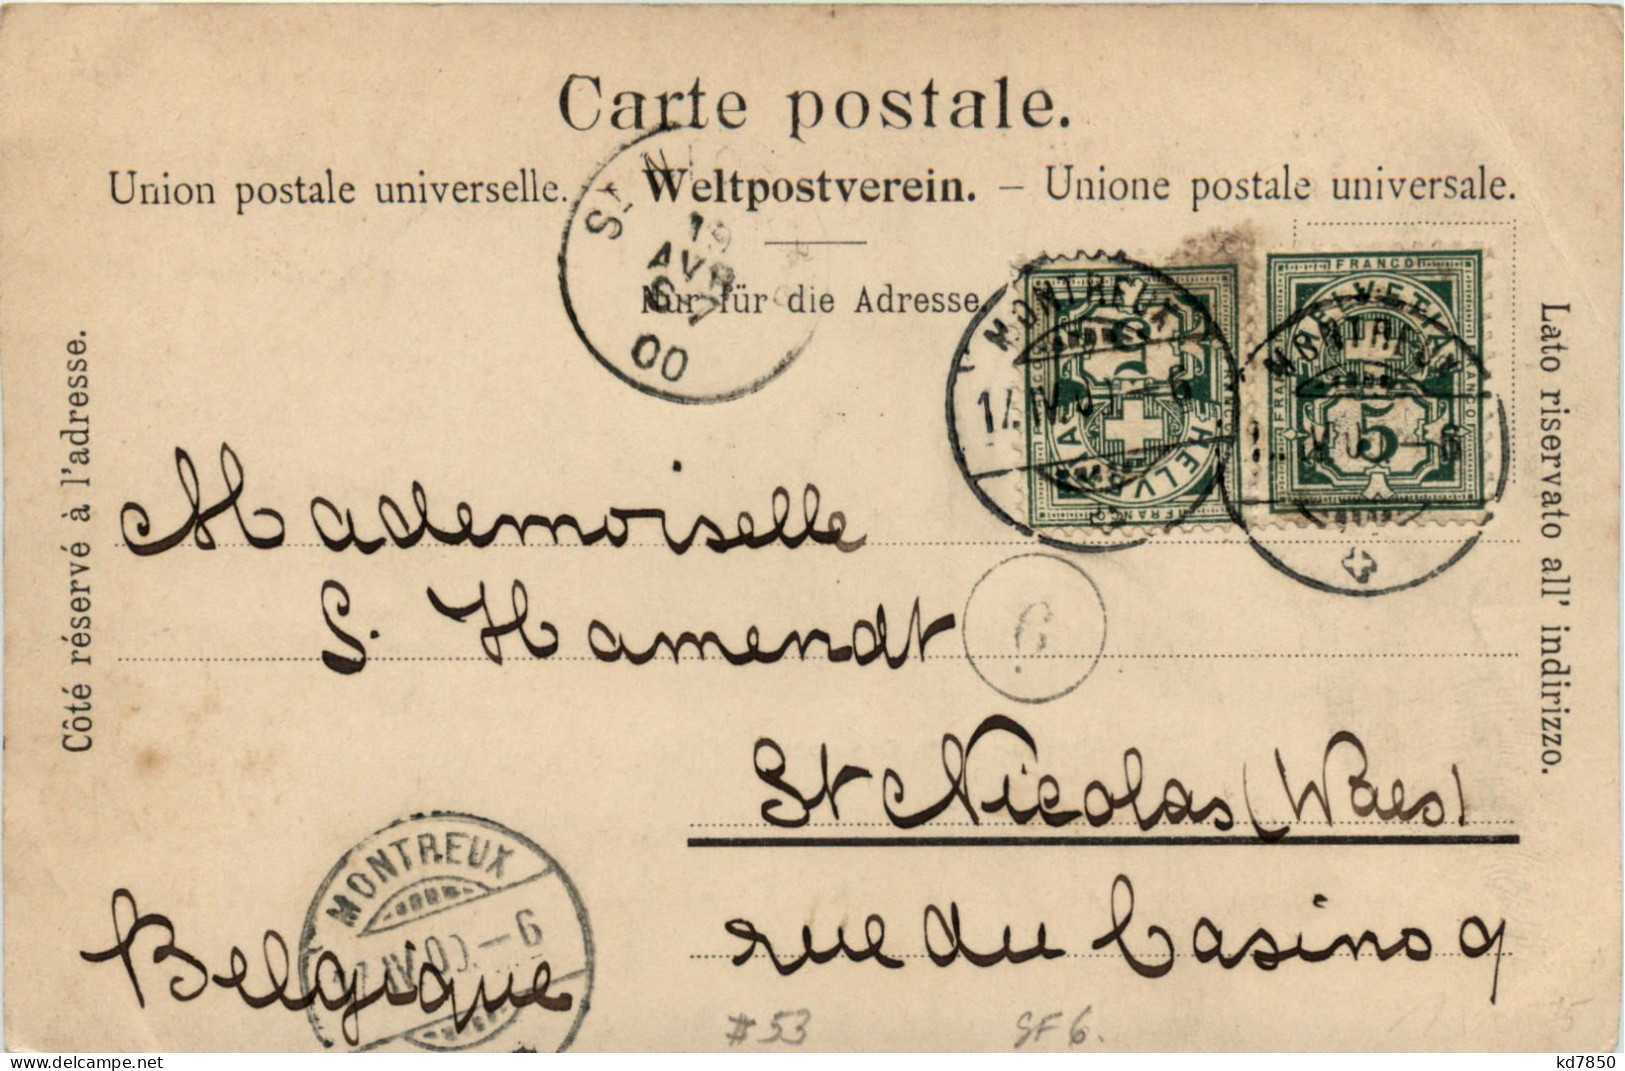 Carte postale.
Union postale universelle. – Weltpostverein. – Unione postale universale.
Nur für die Adresse
Côté réservé à l'adresse.
Lato riservato all' indirizzo.
19
AVR
00
MONTREUX
FRANCO
HELVETIA
5
MONTREUX
Mademoiselle
S. Hamendt
St Nicolas (Waes)
rue du Casino 9
Belgique
MONTREUX
IV.00.–6
#53
SF 6.
delcampe.net
kd7850